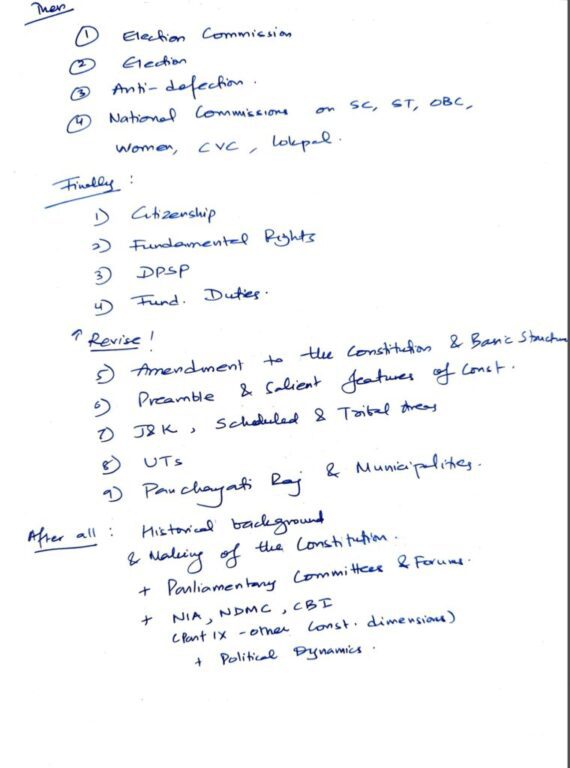 Then
① Election Commission
② Election
③ Anti-defection.
④ National Commissions on SC, ST, OBC,
Women, CVC, Lokpal.
Finally :
1) Citizenship
2) Fundamental Rights
3) DPSP
4) Fund. Duties.
↑ Revise!
5) Amendment to the Constitution & Basic Structure
6) Preamble & Salient features of Const.
7) J&K, Scheduled & Tribal Areas
8) UTs
9) Panchayati Raj & Municipalities.
After all : Historical background
& Making of the Constitution.
+ Parliamentary Committees & Forums.
+ NIA, NDMC, CBI
(Part IX - other Const. dimensions)
+ Political Dynamics.